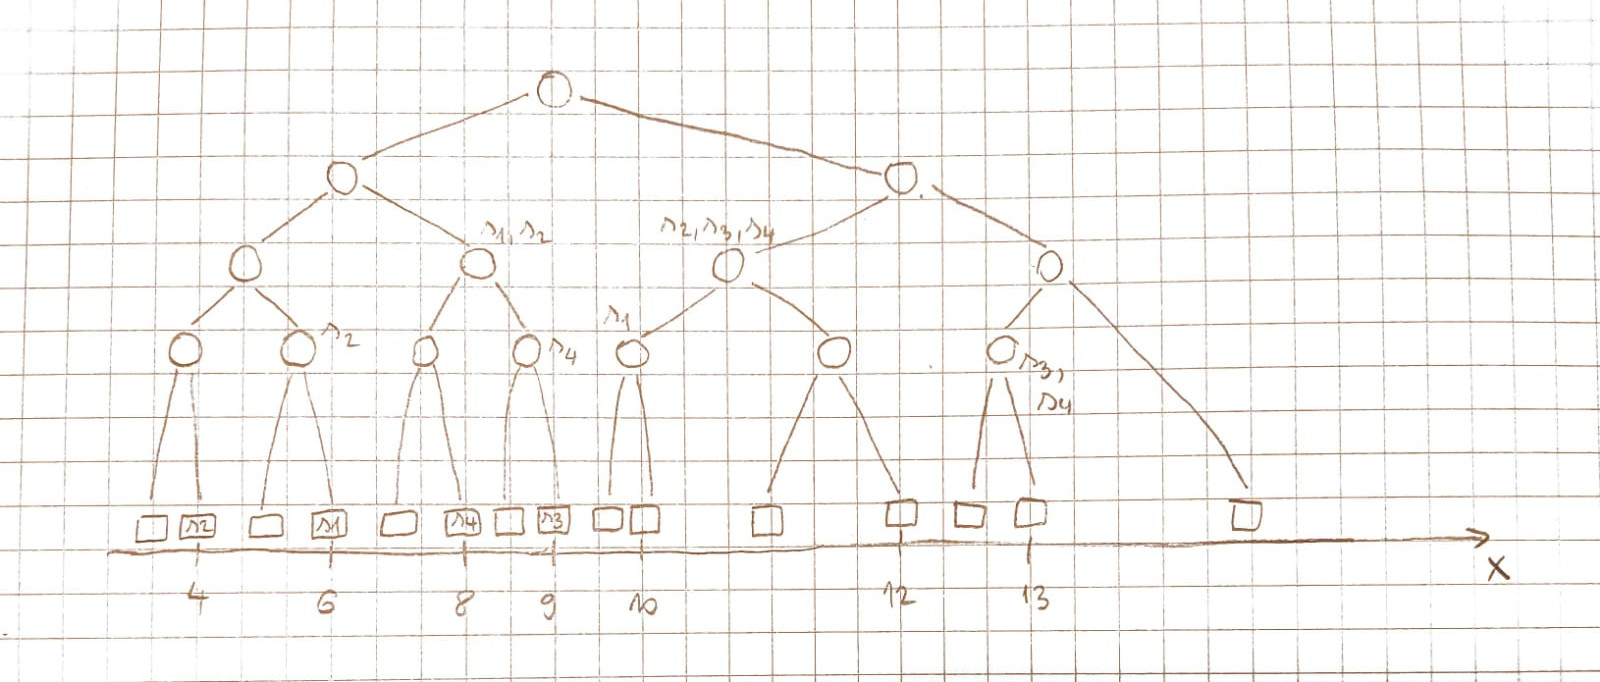 s1, s2
s2, s3, s4
s1
s2
s4
s3,
s4
s2
s1
s4
s3
4
6
8
9
10
12
13
x